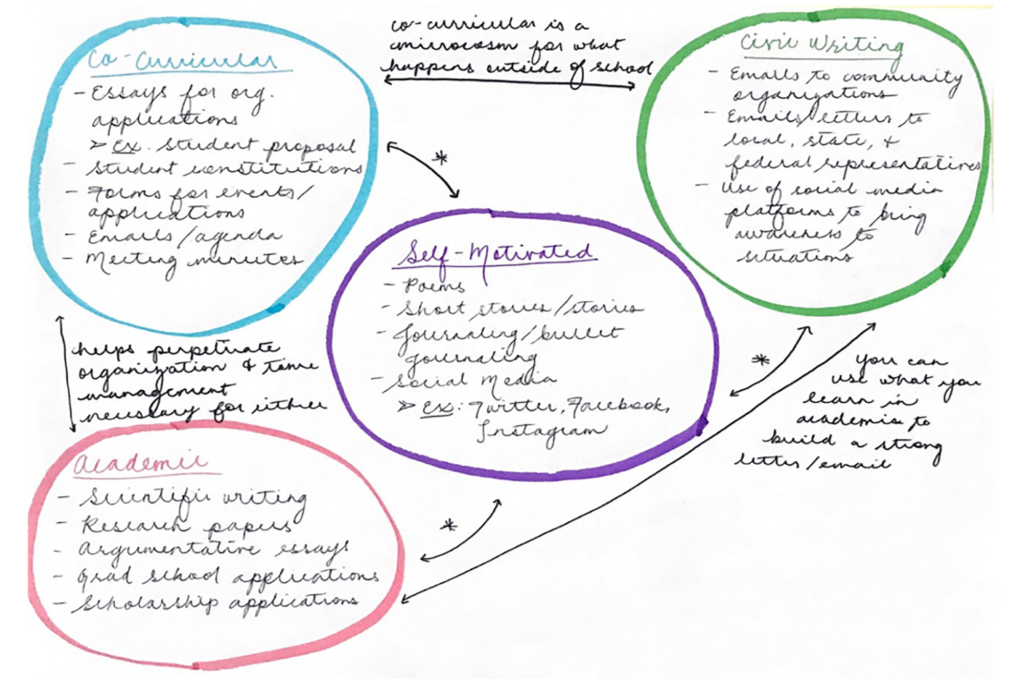 Co-Curricular
- Essays for org.
applications
> ex. Student proposal
- Student constitutions
- Forms for events/
applications
- Emails/agenda
- Meeting minutes
co-curricular is a
microcosm for what
happens outside of school
Civic Writing
- Emails to community
organizations
- Emails letters to
local, state, &
federal representatives
- Use of social media
platforms to bring
awareness to
situations
*
Self-Motivated
- Poems
- Short stories/stories
- Journaling/bullet
journaling
- Social Media
> Ex: Twitter, Facebook,
Instagram
helps perpetuate
organization & time
management
necessary for either
*
you can
use what you
learn in
academia to
build a strong
letter/email
Academic
- Scientific writing
- Research papers
- Argumentative essays
- Grad school applications
- Scholarship applications
*